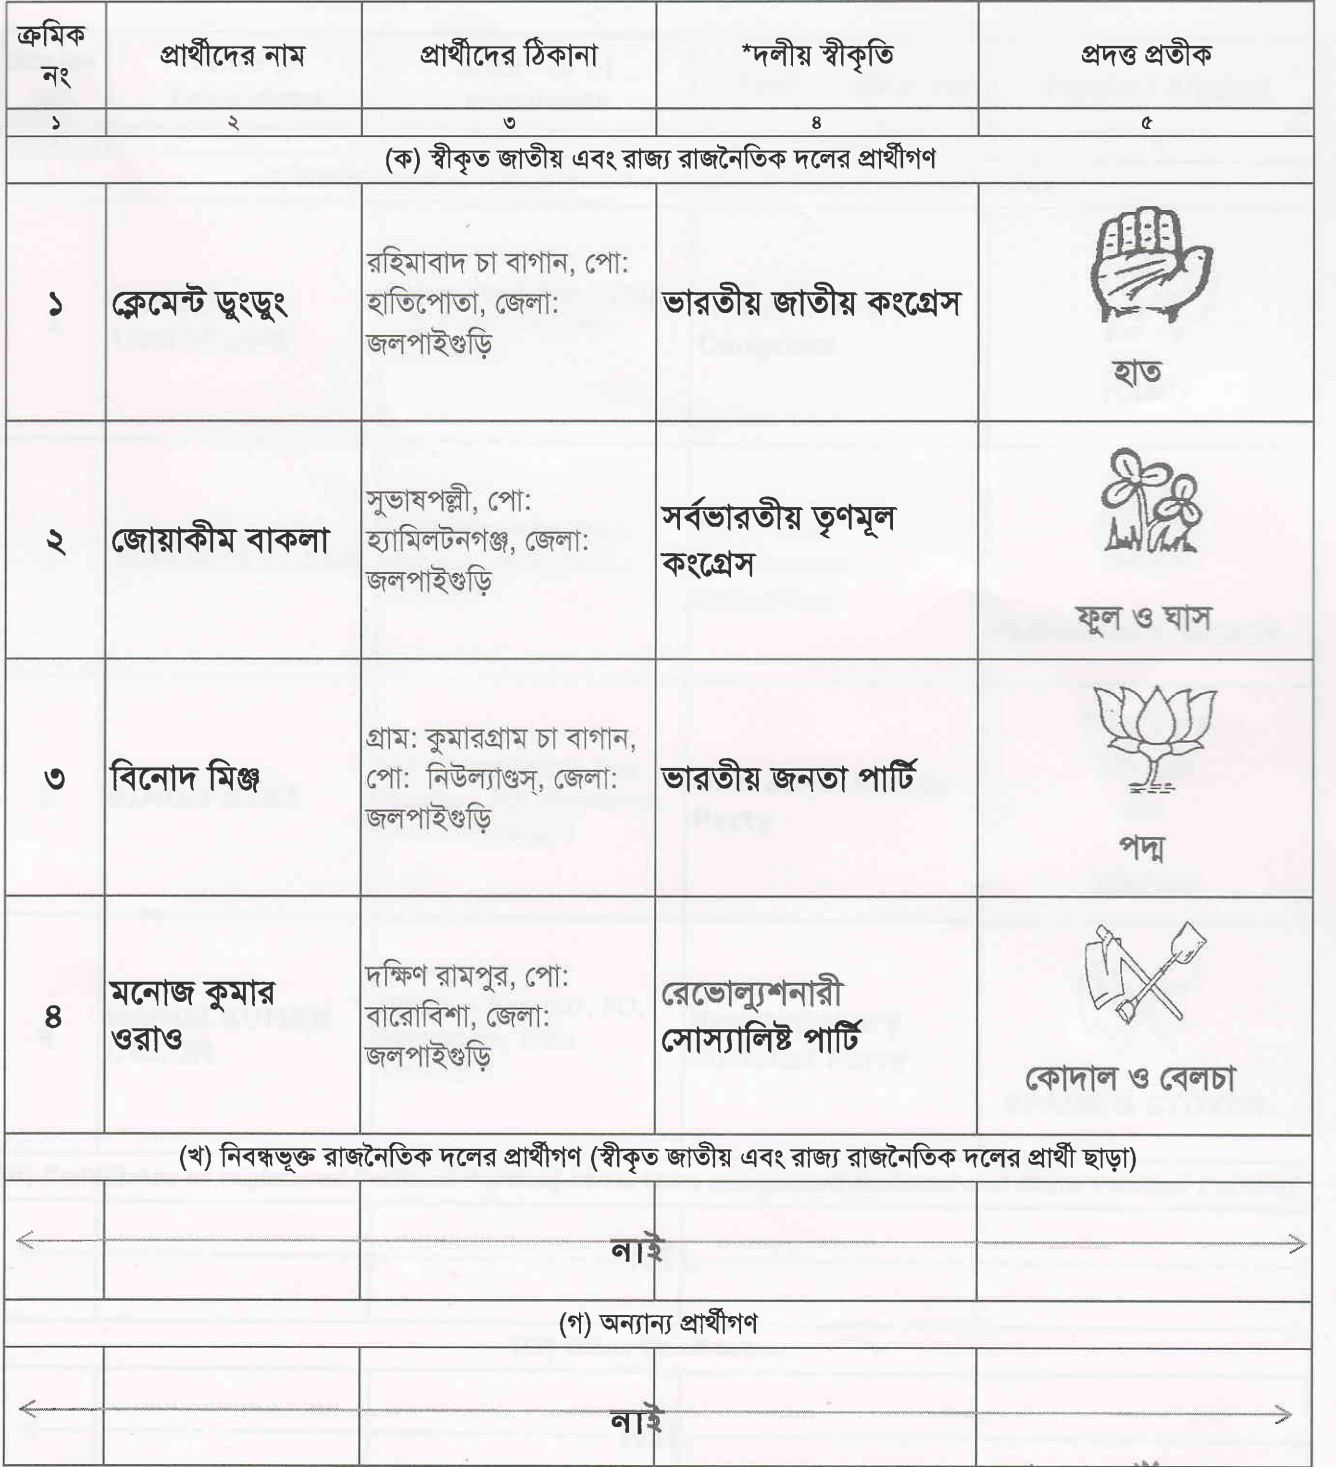 ক্রমিক নং প্রার্থীদের নাম প্রার্থীদের ঠিকানা *দলীয় স্বীকৃতি প্রদত্ত প্রতীক
১ ২ ৩ ৪ ৫
(ক) স্বীকৃত জাতীয় এবং রাজ্য রাজনৈতিক দলের প্রার্থীগণ
১
ক্লেমেন্ট ডুংডুং
রহিমাবাদ চা বাগান, পো:
হাতিপোতা, জেলা:
জলপাইগুড়ি
ভারতীয় জাতীয় কংগ্রেস
হাত
২
জোয়াকীম বাকলা
সুভাষপল্লী, পো:
হ্যামিলটনগঞ্জ, জেলা:
জলপাইগুড়ি
সর্বভারতীয় তৃণমূল
কংগ্রেস
ফুল ও ঘাস
৩
বিনোদ মিঞ্জ
গ্রাম: কুমারগ্রাম চা বাগান,
পো: নিউল্যাণ্ডস্, জেলা:
জলপাইগুড়ি
ভারতীয় জনতা পার্টি
পদ্ম
৪
মনোজ কুমার
ওরাও
দক্ষিণ রামপুর, পো:
বারোবিশা, জেলা:
জলপাইগুড়ি
রেভোল্যুশনারী
সোস্যালিষ্ট পার্টি
কোদাল ও বেলচা
(খ) নিবন্ধভূক্ত রাজনৈতিক দলের প্রার্থীগণ (স্বীকৃত জাতীয় এবং রাজ্য রাজনৈতিক দলের প্রার্থী ছাড়া)
নাই
(গ) অন্যান্য প্রার্থীগণ
নাই